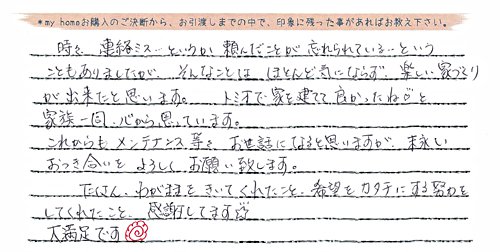 *my homeお購入のご決断から、お引渡しまでの中で、印象に残った事があればお教え下さい。
時々、連絡ミス…というか 頼んだことが 忘れられている…という
こともありましたが、そんなことは ほとんど気にならず、楽しい家づくり
が出来たと思います。 トミオで家を建てて良かったね♡と
家族一同、心から思っています。
これからも メンテナンス等々、お世話になると思いますが、末永い
おつき合いを よろしく お願い致します。
たくさん、わがままを きいてくれたこと、希望を カタチに する努力を
してくれたこと、感謝してます☆
大満足です